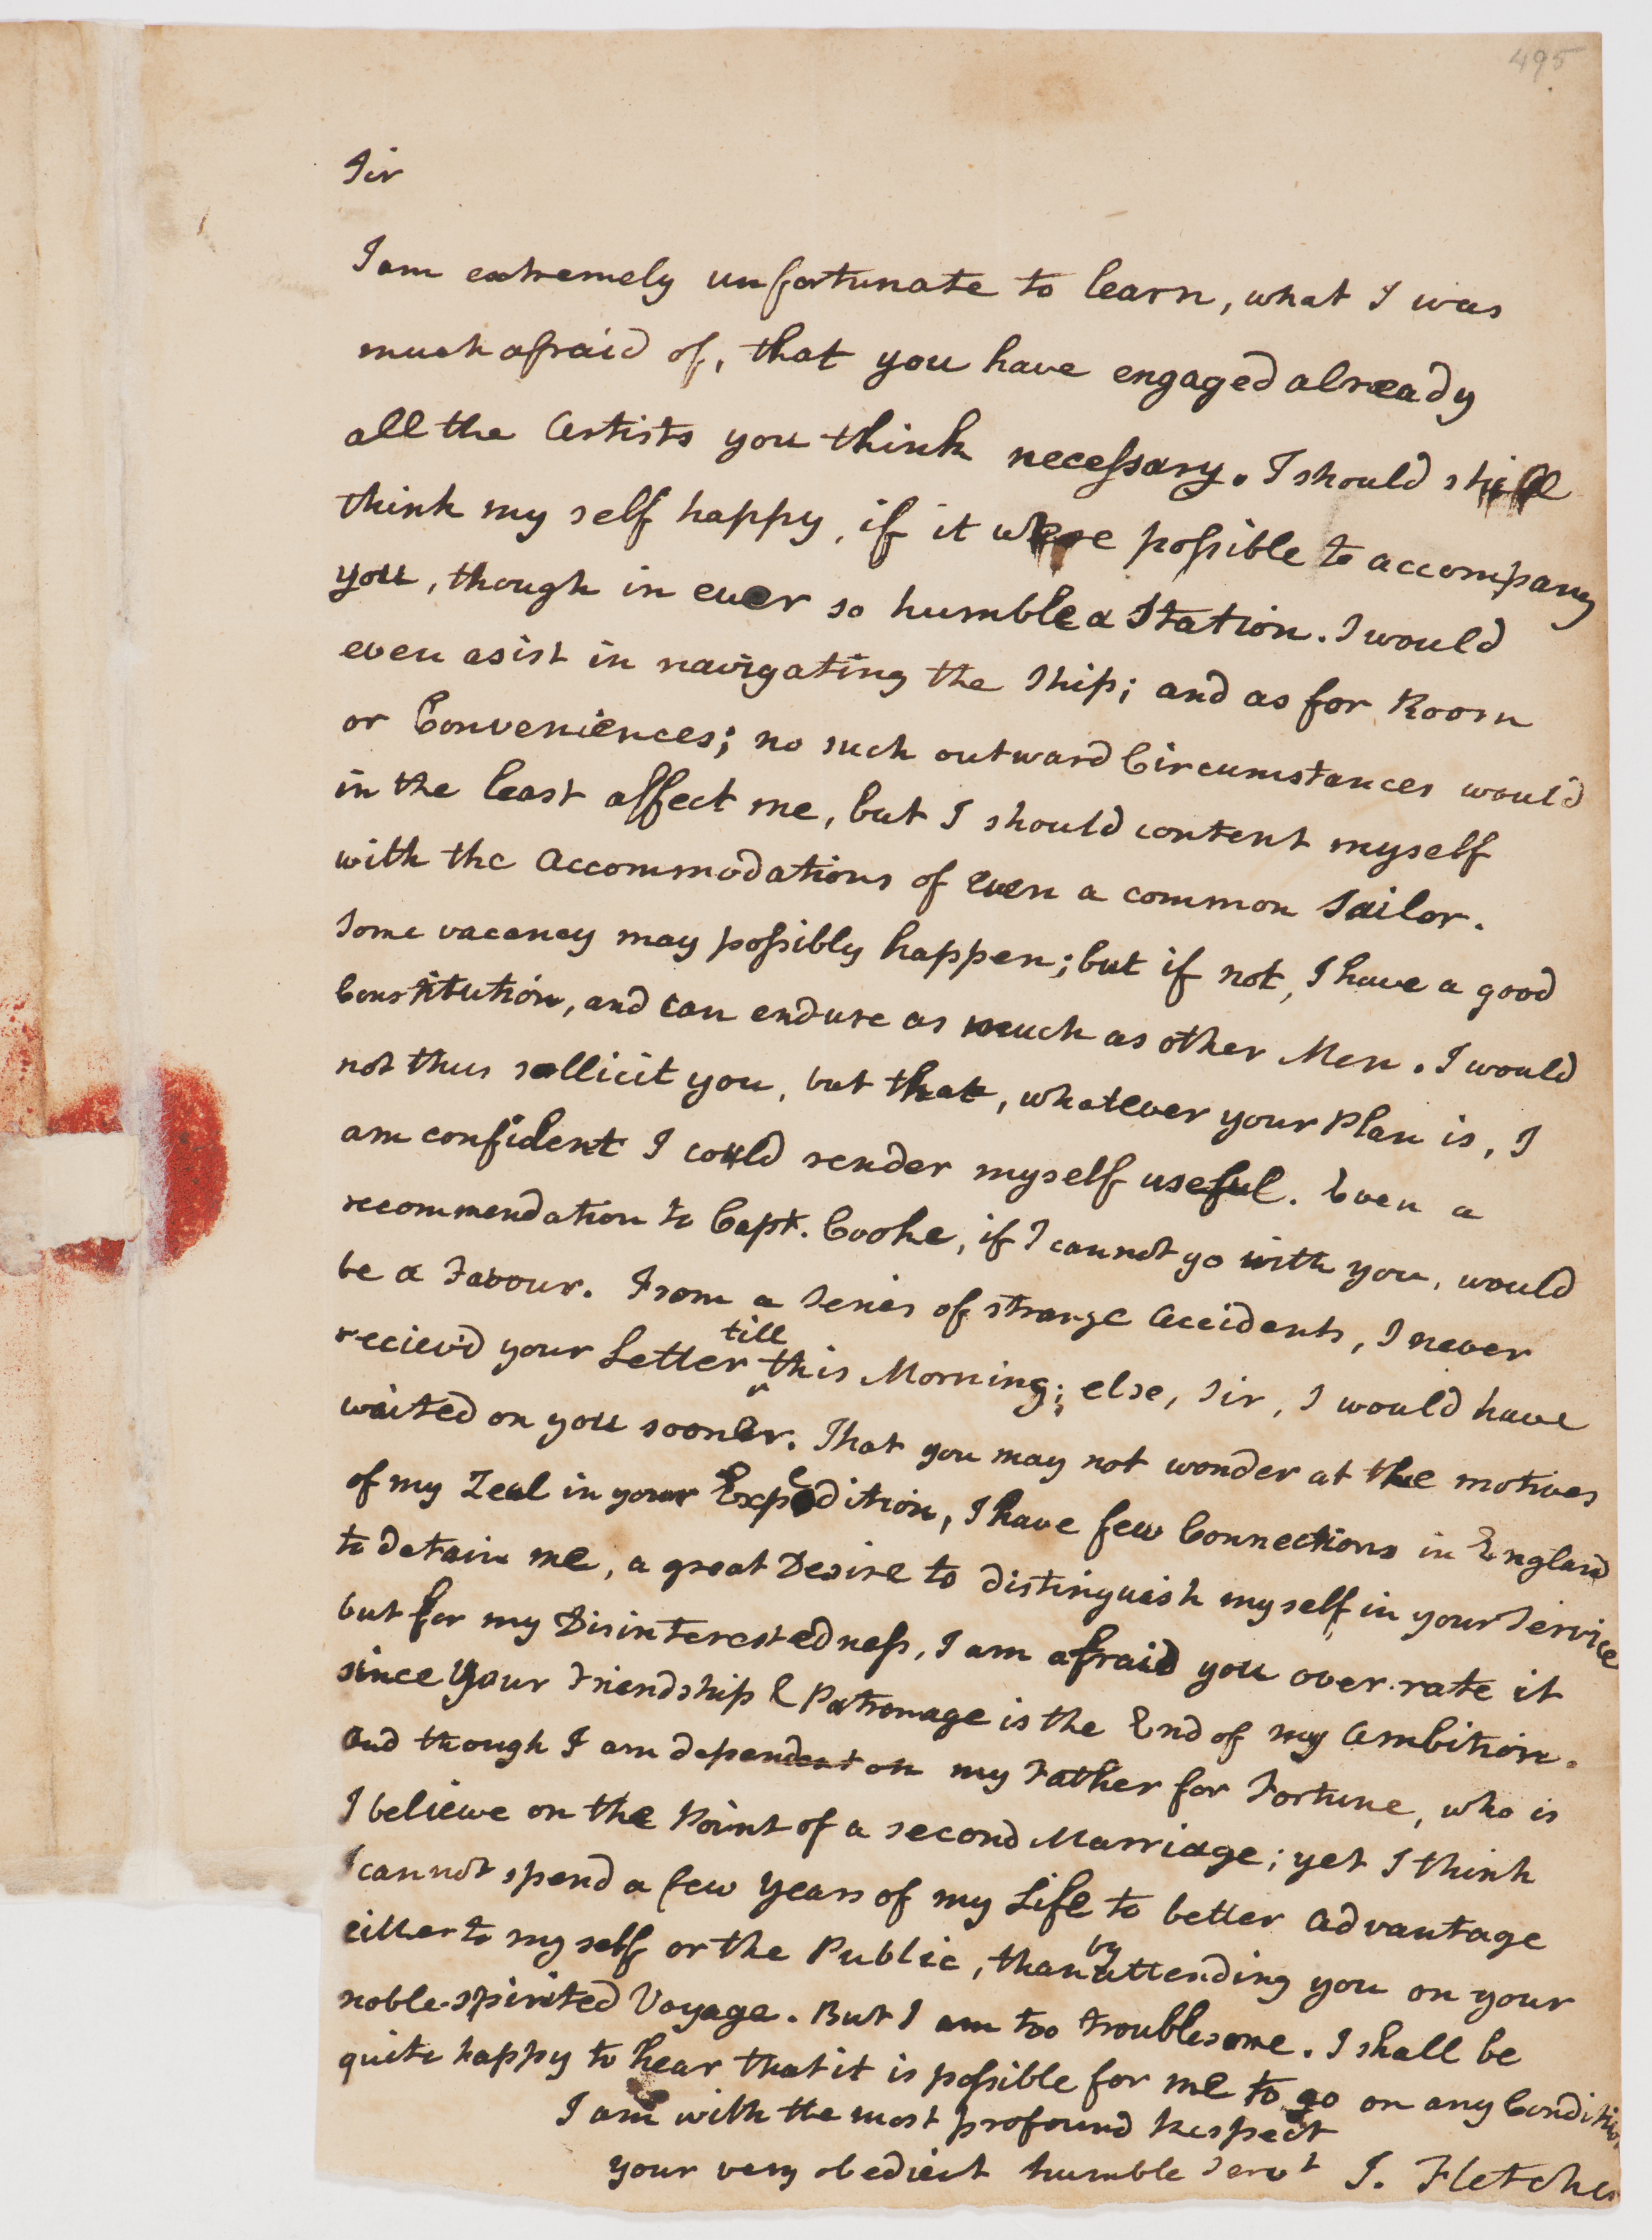 495
Sir
I am extremely unfortunate to learn, what I was
much afraid of, that you have engaged already
all the Artists you think necessary. I should still
think my self happy, if it were possible to accompany
you, though in ever so humble a Station. I would
even asist in navigating the Ship; and as for Room
or Conveniences; no such outward Circumstances would
in the least affect me, but I should content myself
with the Accommodations of even a common Sailor.
Some vacancy may possibly happen; but if not, I have a good
Constitution, and can endure as much as other Men. I would
not thus sollicit you, but that, whatever your Plan is, I
am confident I could render myself useful. Even a
recommendation to Capt. Cooke, if I cannot go with you, would
be a Favour. From a Series of strange Accidents, I never
reciev'd your Letter till this Morning; else, Sir, I would have
waited on you sooner. That you may not wonder at the motives
of my Zeal in your Expedition, I have few Connections in England
to detain me, a great Desire to distinguish myself in your Service
but for my Disinterestedness, I am afraid you over-rate it
since your Friendship & Patronage is the End of my Ambition.
And though I am dependent on my Father for Fortune, who is
I believe on the Point of a second Marriage; yet I think
I cannot spend a few years of my Life to better Advantage
either to my self or the Public, than by attending you on your
noble-spirited Voyage. But I am too troublesome. I shall be
quite happy to hear that it is possible for me to go on any Condition
I am with the most profound Respect
your very obedient humble Servt J. Fletcher